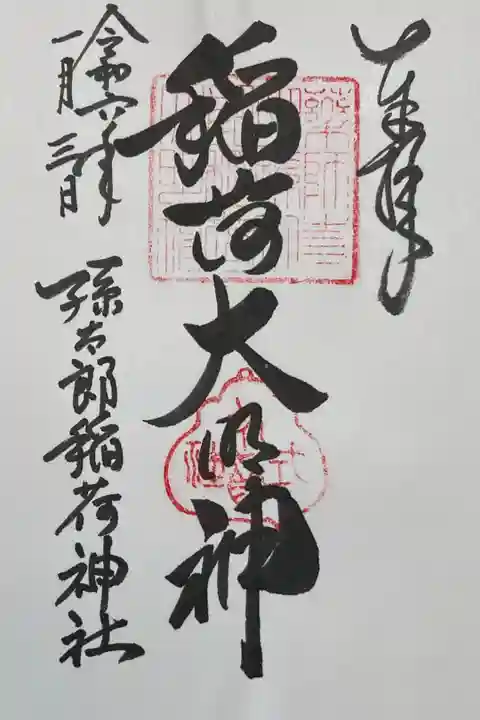 奉拝
稲荷大明神
令和六年
一月三日
孫太郎稲荷神社